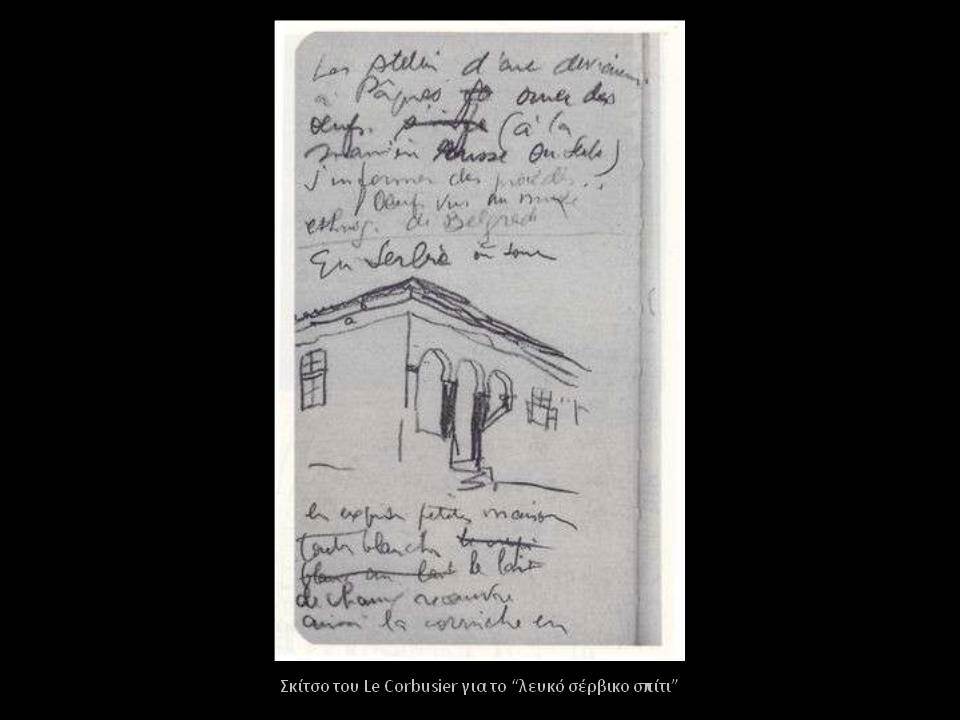 Les d'art
à Pâques orner des
œufs. (à la
manière Russe ou Serbe)
s'informer des procédés..
Oeufs vus au musée
ethnog. de Belgrade
En Serbie on
petites maisons
toutes blanches
blanc au lait le lait
de chaux recouvre
ainsi la corniche en
Σκίτσο του Le Corbusier για το “λευκό σέρβικο σπίτι”